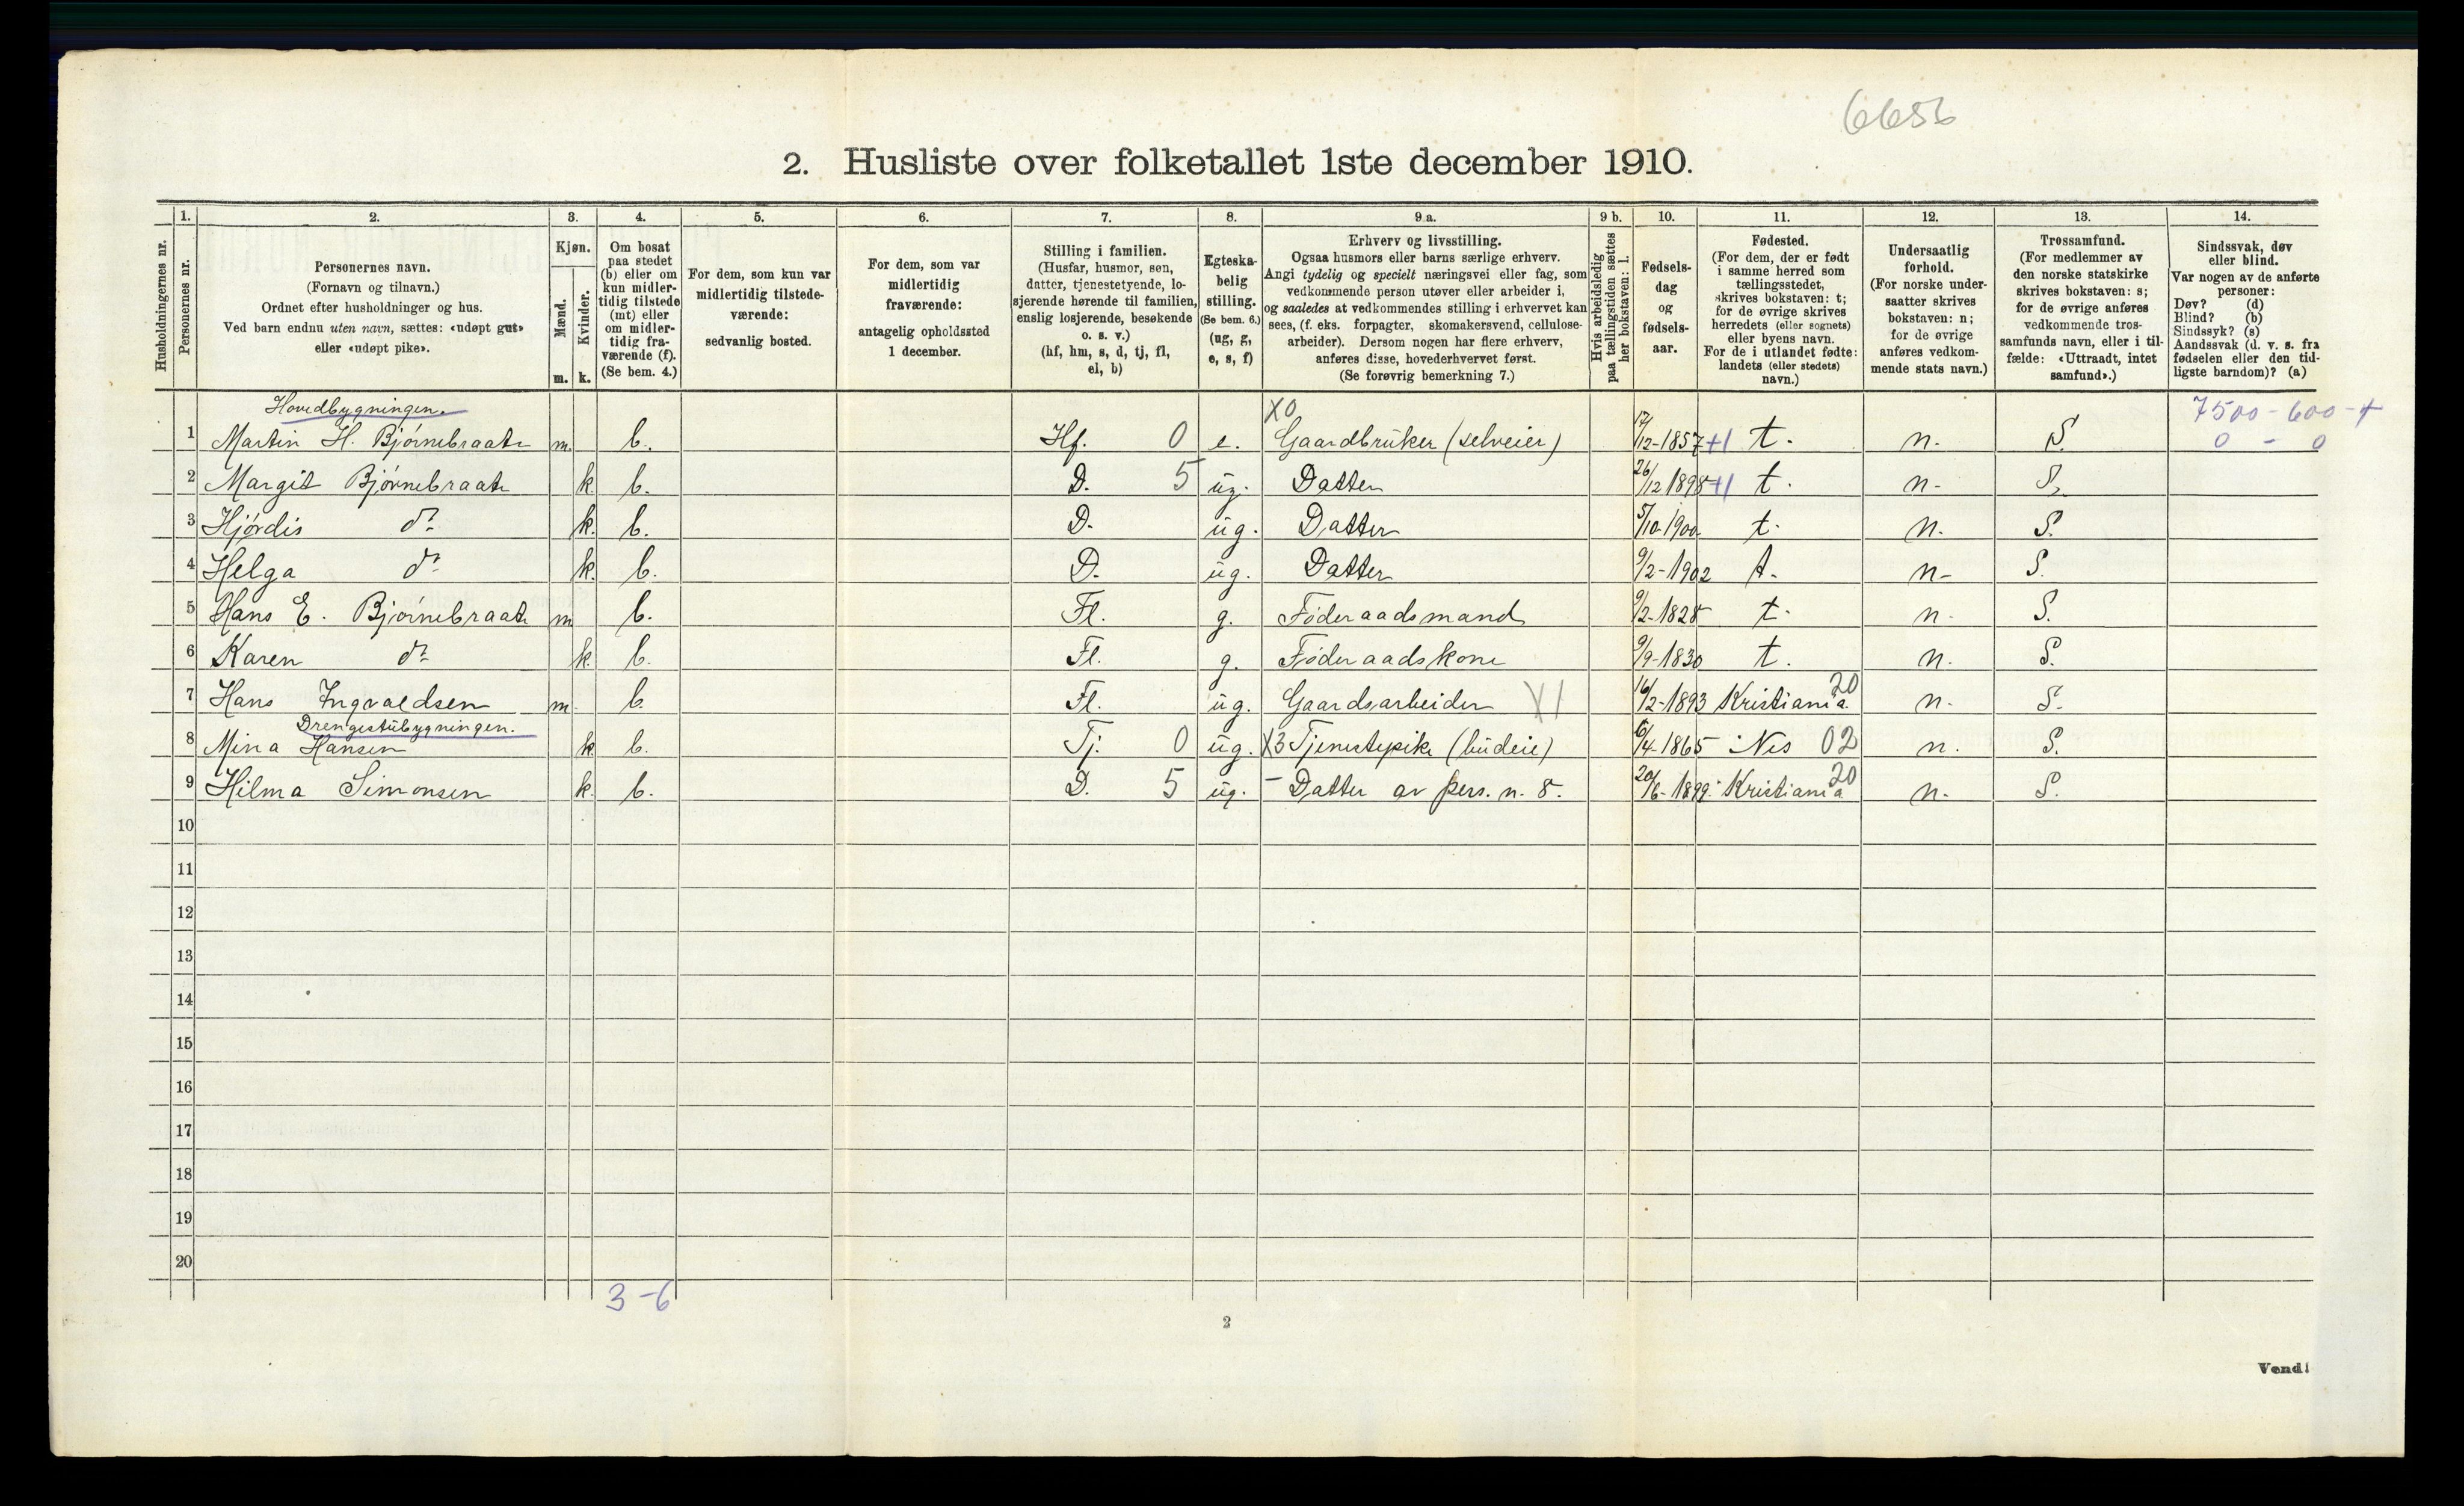 6656
2. Husliste over folketallet 1ste december 1910.
Husholdningernes nr.
1. Personernes nr.
2. Personernes navn.
(Fornavn og tilnavn.)
Ordnet efter husholdninger og hus.
Ved barn endnu uten navn, sættes: «udøpt gut»
eller «udøpt pike».
3. Kjøn.
Mænd. m.
Kvinder. k.
4. Om bosat
paa stedet
(b) eller om
kun midler-
tidig tilstede
(mt) eller
om midler-
tidig fra-
værende (f).
(Se bem. 4.)
5. For dem, som kun var
midlertidig tilstede-
værende:
sedvanlig bosted.
6. For dem, som var
midlertidig
fraværende:
antagelig opholdssted
1 december.
7. Stilling i familien.
(Husfar, husmor, søn,
datter, tjenestetyende, lo-
sjerende hørende til familien,
enslig losjerende, besøkende
o. s. v.)
(hf, hm, s, d, tj, fl,
el, b)
8. Egteska-
belig
stilling.
(Se bem. 6.)
(ug, g,
e, s, f)
9 a. Erhverv og livsstilling.
Ogsaa husmors eller barns særlige erhverv.
Angi tydelig og specielt næringsvei eller fag, som
vedkommende person utøver eller arbeider i,
og saaledes at vedkommendes stilling i erhvervet kan
sees, (f. eks. forpagter, skomakersvend, cellulose-
arbeider). Dersom nogen har flere erhverv,
anføres disse, hovederhvervet først.
(Se forøvrig bemerkning 7.)
9 b. Hvis arbeidsledig
paa tællingstiden sættes
her bokstaven: l.
10. Fødsels-
dag
og
fødsels-
aar.
11. Fødested.
(For dem, der er født
i samme herred som
tællingsstedet,
skrives bokstaven: t;
for de øvrige skrives
herredets (eller sognets)
eller byens navn.
For de i utlandet fødte:
landets (eller stedets)
navn.)
12. Undersaatlig
forhold.
(For norske under-
saatter skrives
bokstaven: n;
for de øvrige
anføres vedkom-
mende stats navn.)
13. Trossamfund.
(For medlemmer av
den norske statskirke
skrives bokstaven: s;
for de øvrige anføres
vedkommende tros-
samfunds navn, eller i til-
fælde: «Uttraadt, intet
samfund».)
14. Sindssvak, døv
eller blind.
Var nogen av de anførte
personer:
Døv? (d)
Blind? (b)
Sindssyk? (s)
Aandssvak (d. v. s. fra
fødselen eller den tid-
ligste barndom)? (a)
Hovedbygningen. X0 7500-600-+
1 Martin H. Bjørnebraate m. b. Hf. 0 e. Gaardbruker (selveier) 17/12-1857 +1 t. n. S. 0 - 0
2 Margit Bjørnebraate k. b. D. 5 ug. Datter 26/12 1898 +1 t. n. S.
3 Hjørdis do k. b. D. ug. Datter 5/10-1900 t. n. S.
4 Helga do k. b. D. ug. Datter 9/2-1902 t. n. S.
5 Hans E. Bjørnebraate m b. Fl. g. Føderaadsmand 9/2-1828 t. n. S.
6 Karen do k. b. Fl. g. Føderaadskone 9/9-1830 t. n. S.
7 Hans Ingvaldsen m. b. Fl. ug. Gaardsarbeider X1 16/2-1893 Kristiania 20 n. S.
Drengestubygningen.
8 Mina Hansen k. b. Tj. 0 ug. X3 Tjenestepike (budeie) 6/4-1865 Nes 02 n. S.
9 Hilma Simonsen k. b. D. 5 ug. - Datter av pers. n. 8. 20/6-1899 Kristiania 20 n. S.
10
11
12
13
14
15
16
17
18
19
20
3-6
2
Vend!